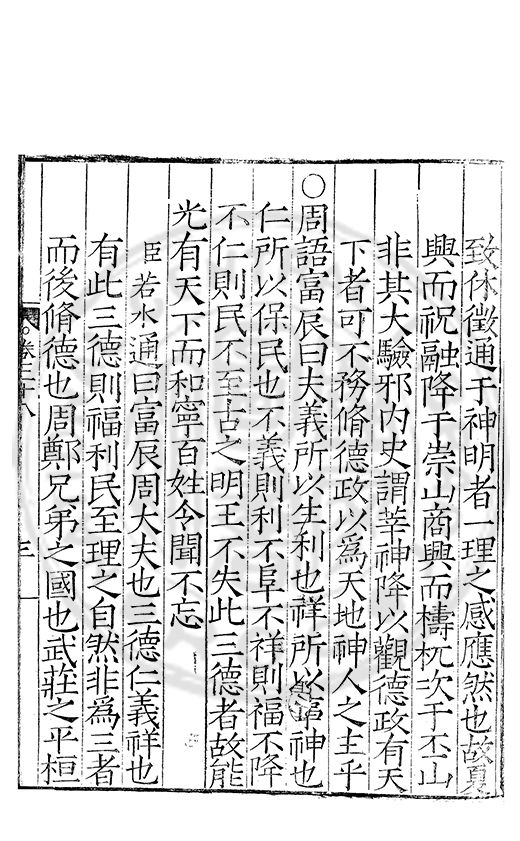 致休徵通于神明者一理之感應然也故夏
興而祝融降于崇山商興而檮杌次于丕山
非其大驗邪內史謂莘神降以觀德政有天
下者可不務脩德政以爲天地神人之主乎
○周語富辰曰夫義所以生利也祥所以事神也
仁所以保民也不義則利不阜不祥則福不降
不仁則民不至古之明王不失此三德者故能
光有天下而和寧百姓令聞不忘
臣若水通曰富辰周大夫也三德仁義祥也
有此三德則福利民至理之自然非爲三者
而後脩德也周鄭兄弟之國也武莊之平桓
卷三十八
三